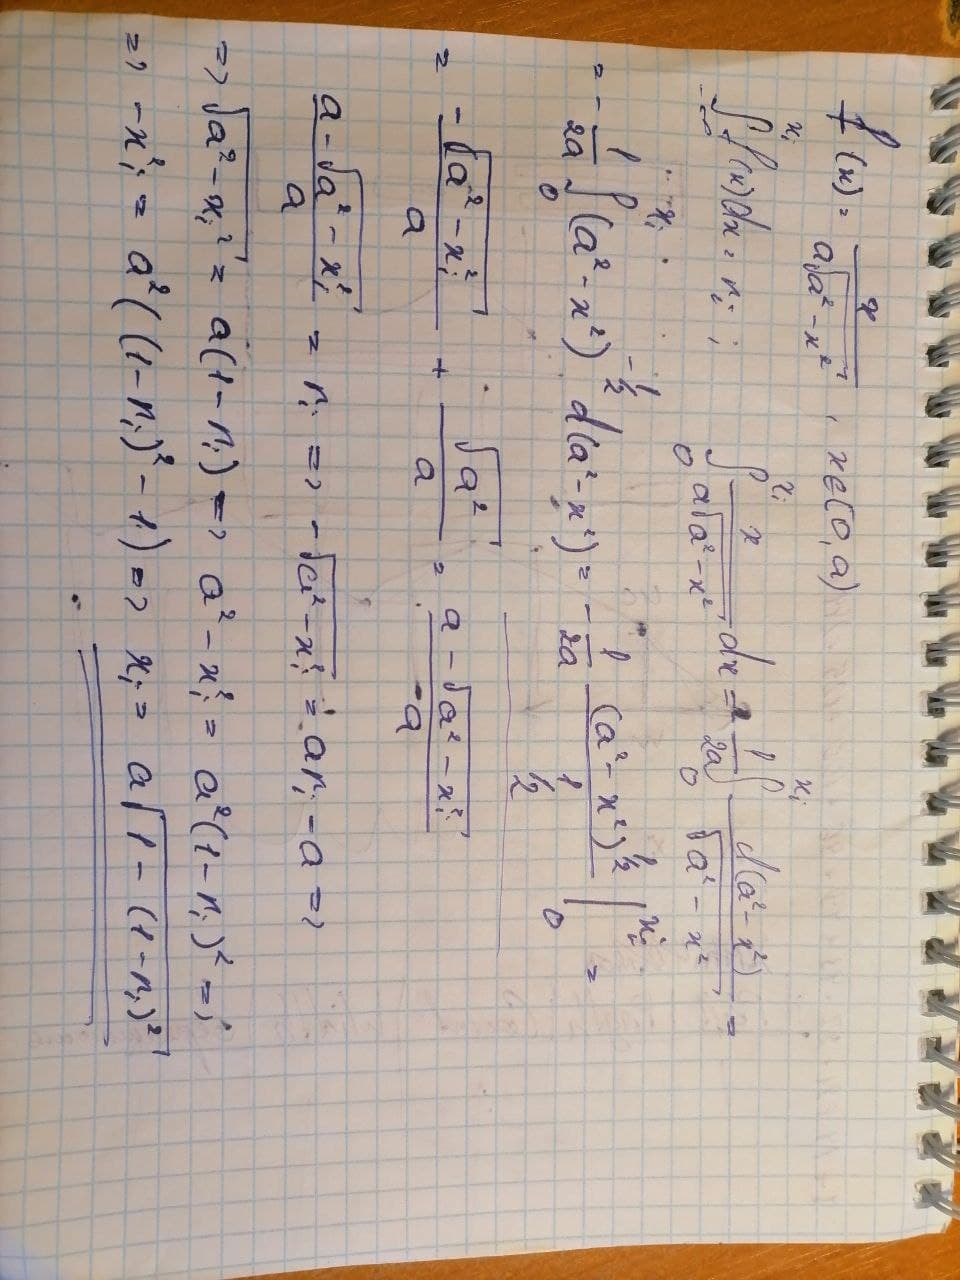 f(x) = x / (a√(a² - x²)), x ∈ (0, a)
∫_{-∞}^{x_i} f(x)dx = r_i ; ∫_0^{x_i} x / (a√(a² - x²)) dx = - 1/(2a) ∫_0^{x_i} d(a² - x²) / √(a² - x²) =
= - 1/(2a) ∫_0^{x_i} (a² - x²)^{-1/2} d(a² - x²) = - 1/(2a) (a² - x²)^{1/2} / (1/2) |_0^{x_i} =
= -√(a² - x_i²) / a + √a² / a = (a - √(a² - x_i²)) / a
(a - √(a² - x_i²)) / a = r_i => -√(a² - x_i²) = ar_i - a =>
=> √(a² - x_i²) = a(1 - r_i) => a² - x_i² = a²(1 - r_i)² =>
=> -x_i² = a²((1 - r_i)² - 1) => x_i = a√(1 - (1 - r_i)²)